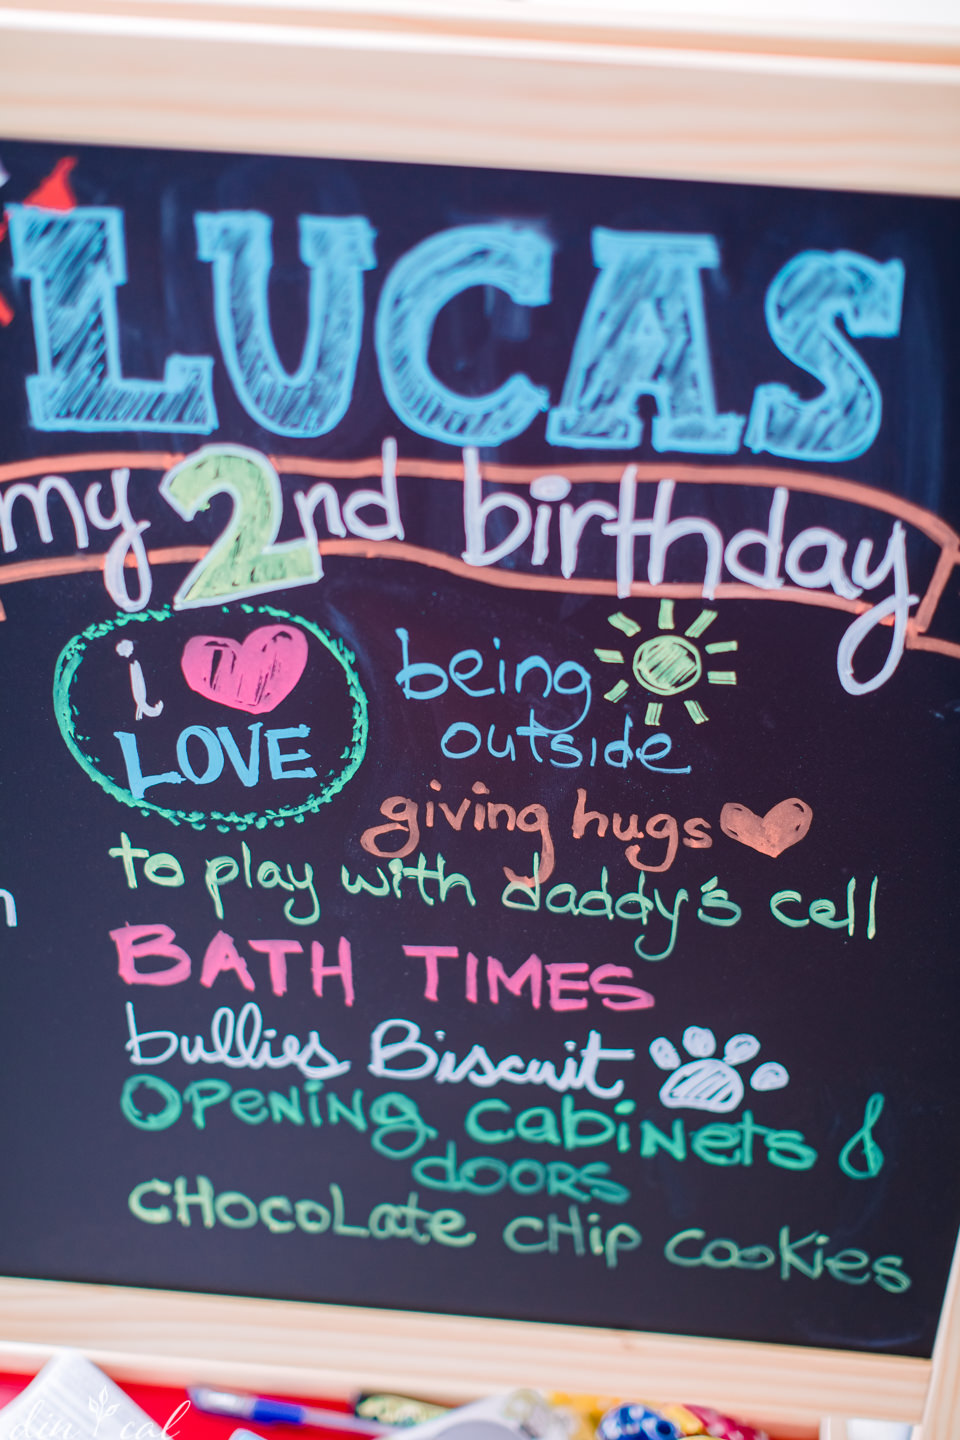 LUCAS
my 2nd birthday
i
LOVE
being
outside
giving hugs
to play with daddy's cell
BATH TIMES
bullies Biscuit
OPENING cabinets &
doors
CHocoLate CHip CooKies
din cal